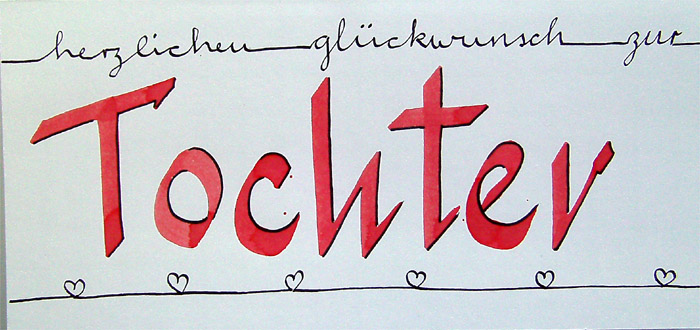 herzlichen glückwunsch zur
Tochter